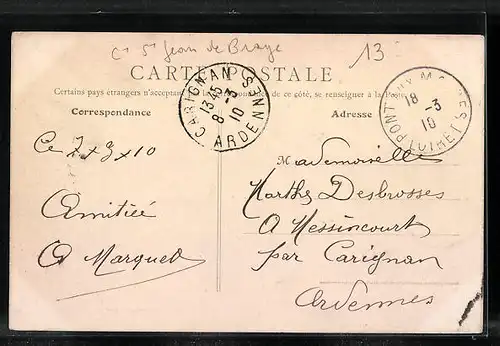 Cⁿ Sᵗ Jean de Braye
13
CARTE POSTALE
Certains pays étrangers n'acceptent pas de ce côté, se renseigner à la Poste
Correspondance
Adresse
CARIGNAN
13 45
8 -3
10
ARDENNES
PONT AUX MOINES
18
-3
10
LOIRET
Ce 7 x 3 x 10
Amitiée
A Marquet
Mademoiselle
Marthe Desbrosses
A Messincourt
par Carignan
Ardennes